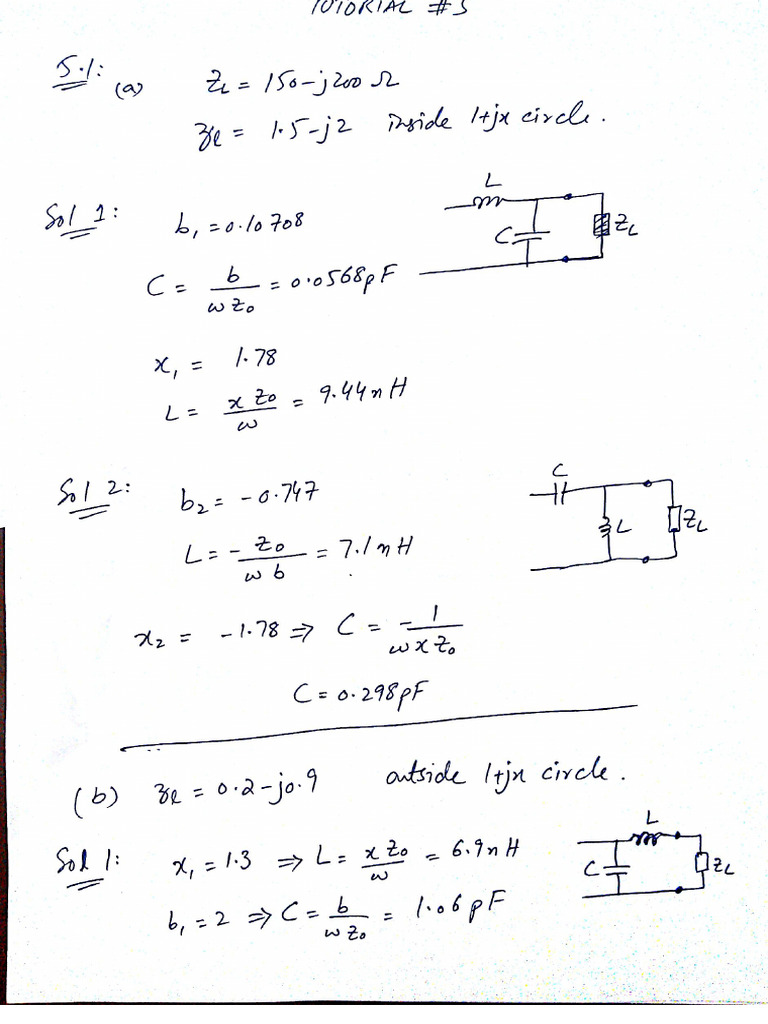 TUTORIAL #5
5.1: (a) Z_L = 150-j200 Ω
z_l = 1.5-j2 inside 1+jx circle.
Sol 1: b₁ = 0.10708
L
C
Z_L
C = b/(ωZ₀) = 0.0568pF
x₁ = 1.78
L = xZ₀/ω = 9.44nH
Sol 2: b₂ = -0.747
C
L
Z_L
L = -Z₀/(ωb) = 7.1nH
x₂ = -1.78 ⇒ C = -1/(ωxZ₀)
C = 0.298pF
(b) z_l = 0.2-j0.9 outside 1+jx circle.
Sol 1: x₁ = 1.3 ⇒ L = xZ₀/ω = 6.9nH
L
C
Z_L
b₁ = 2 ⇒ C = b/(ωZ₀) = 1.06pF